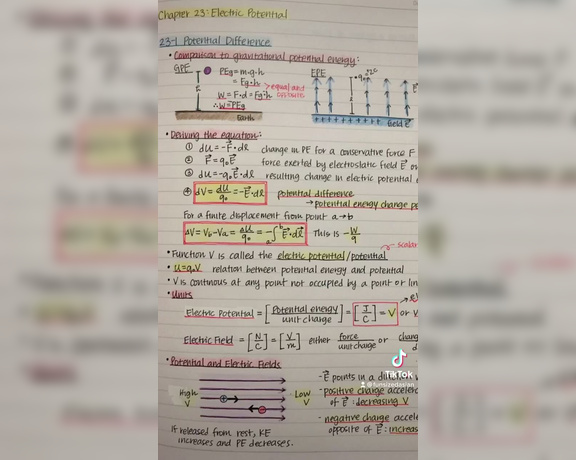 Chapter 23: Electric Potential
23-1 Potential Difference
• Comparison to gravitational potential energy:
GPE
PEg = m·g·h
= Fg·h
W = F·d = Fg·h
∴ W = PEg
> equal and opposite
Earth
EPE
field E
• Deriving the equation:
① dU = -F⃗·dℓ change in PE for a conservative force F
② F⃗ = q₀E⃗ force exerted by electrostatic field E⃗
③ dU = -q₀E⃗·dℓ resulting change in electric potential
④ dV = dU/q₀ = -E⃗·dℓ potential difference
→ potential energy change
For a finite displacement from point a→b
ΔV = Vb - Va = ΔU/q₀ = -∫ₐᵇ E⃗·dℓ This is -W/q
scalar
• Function V is called the electric potential/potential
• U = q₀V relation between potential energy and potential
• V is continous at any point not occupied by a point or
• Units
Electric Potential = [Potential energy/unit charge] = [J/C] = V or
Electric Field = [N/C] = [V/m] either force/unit charge or
• Potential and Electric Fields
High V
Low V
- E⃗ points in a
- positive charge
of E⃗: decreasing V
- negative charge
opposite of E⃗:
If released from rest, KE
increases and PE decreases.
TikTok